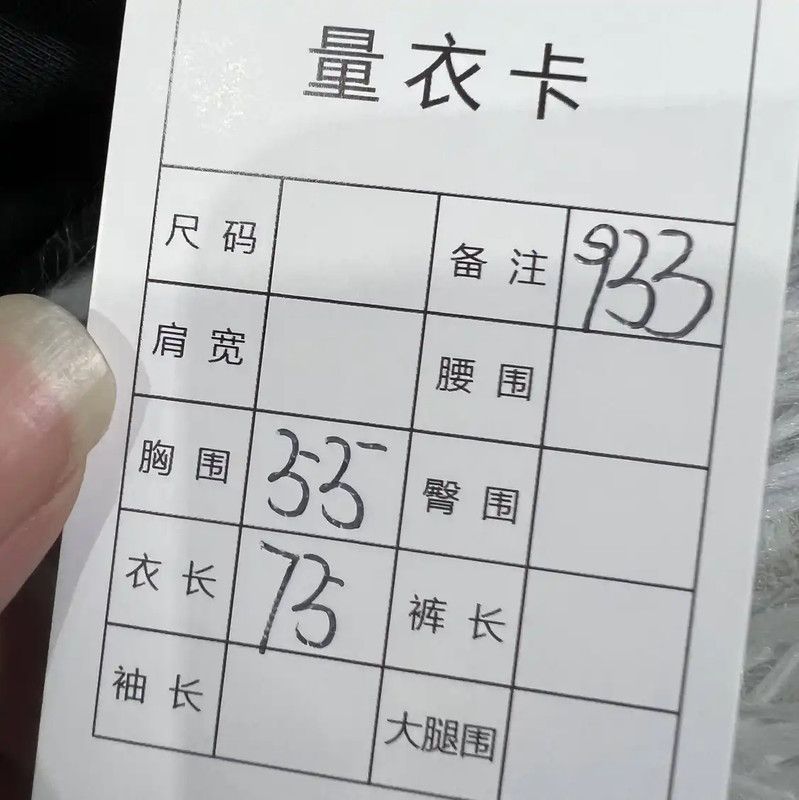 量衣卡
尺码 备注 933
肩宽 腰围
胸围 55 臀围
衣长 75 裤长
袖长 大腿围